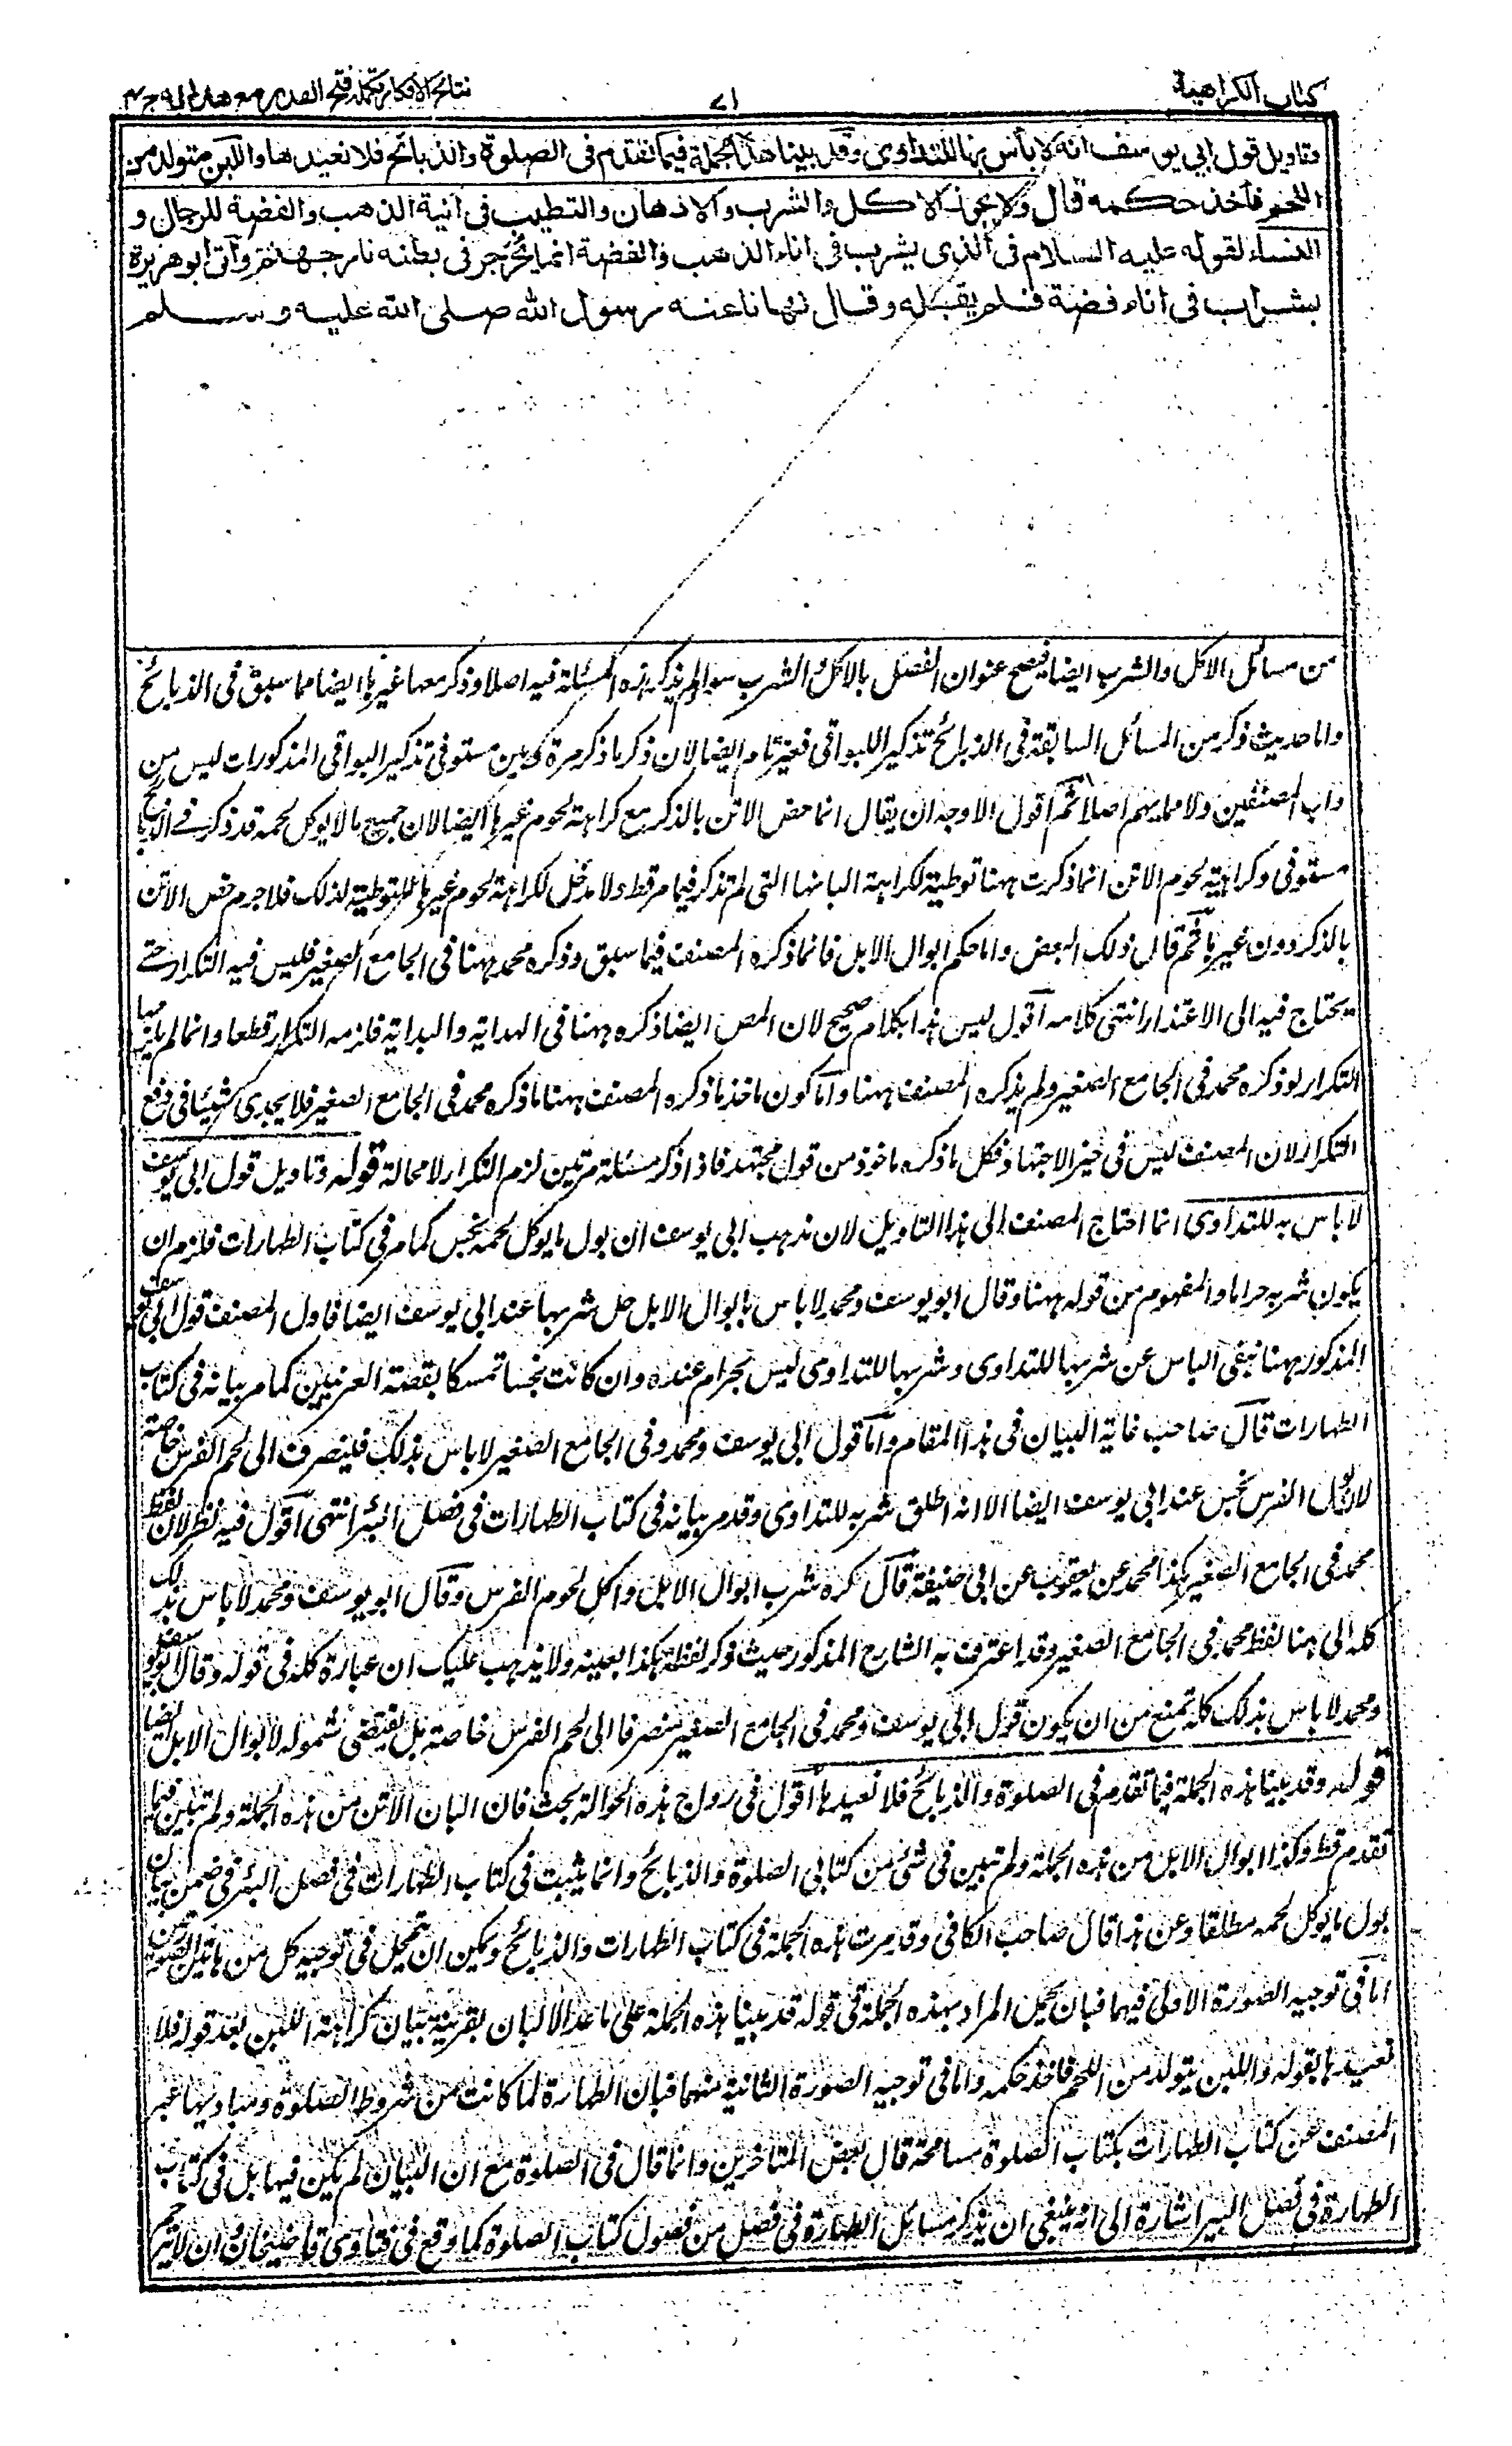 كتاب الكراهية
٧١
نتائج الافكار تكملة فتح القدير مع هداية ج ٤
وتاويل قول ابي يوسف انه لا بأس بها للتداوى وقد بينا هذه الجملة فيما تقدم فى الصلوة والذبائح فلا نعيدها واللبن متولد من
اللحم فأخذ حكمه قال ولا يجوز الاكل والشرب والادهان والتطيب فى آنية الذهب والفضة للرجال و
النساء لقوله عليه السلام فى الذى يشرب فى اناء الذهب والفضة انما يجرجر فى بطنه نار جهنم وأتى ابو هريرة
بشراب فى اناء فضة فلم يقبله وقال نهانا عنه رسول الله صلى الله عليه وسلم
من مسائل الاكل والشرب ايضا فيصح عنوان الفصل بالاكل والشرب سوا لم يذكر هذه المسئلة فيه اصلا وذكر معها غيرها ايضا مما سبق فى الذبائح
واما حديث ذكر من المسائل السابقة فى الذبائح تذكير اللبواقى فغير تام ايضا لان ذكر ما ذكر مرة فى مستوفى تذكير البواقى المذكورات ليس من
داب المصنفين ولا مما يهم اصلا ثم اقول الاوجه ان يقال انما خص الاتن بالذكر مع كراهة لحوم غيرها ايضا لان جميع ما لا يوكل لحمه قد ذكر فى الذبائح
مستوفى وكراهية لحوم الاتن انما ذكرت ههنا توطية لكراهة البانها التى لم تذكر فيما مر قط ولا مدخل لكراهة لحوم غيرها للتوطية لذلك فلا جرم خص الاتن
بالذكر دون غيرها ثم قال ذلك البعض واما حكم ابوال الابل فانما ذكره المصنف فيما سبق وذكره محمد ههنا فى الجامع الصغير فليس فيه التكرار حتى
يحتاج فيه الى الاعتذار انتهى كلامه اقول ليس هذا بكلام صحيح لان المص ايضا ذكره ههنا فى الهداية والبداية فلزمه التكرار قطعا وانما لم يلزم
التكرار لو ذكره محمد فى الجامع الصغير ولم يذكره المصنف ههنا واما كون ماخذ ما ذكره المصنف ههنا ما ذكره محمد فى الجامع الصغير فلا يجدى شيئا فى دفع
التكرار لان المصنف ليس فى حيز الاجتهاد فكل ما ذكره ماخوذ من قول مجتهد فاذا ذكر مسئلة مرتين لزم التكرار لا محالة قوله وتاويل قول ابى يوسف
لا باس به للتداوى انما احتاج المصنف الى هذا التاويل لان مذهب ابى يوسف ان بول ما يوكل لحمه نجس كما مر فى كتاب الطهارات فلزم ان
يكون شربه حراما والمفهوم من قوله ههنا وقال ابو يوسف ومحمد لا باس بابوال الابل حل شربها عند ابى يوسف ايضا فاول المصنف قول ابى يوسف
المذكور ههنا بنفى الباس عن شربها للتداوى وشربها للتداوى ليس بحرام عنده وان كانت نجسا تمسكا بقصة العرنيين كما مر بيانه فى كتاب
الطهارات قال صاحب غاية البيان فى هذا المقام واما قول ابى يوسف ومحمد فى الجامع الصغير لا باس بذلك فلينصرف الى لحم الفرس خاصة
لان بول الفرس نجس عند ابى يوسف ايضا الا انه اطلق شربه للتداوى وقد مر بيانه فى كتاب الطهارات فى فصل البئر انتهى اقول فيه نظر لان لفظ
محمد فى الجامع الصغير هكذا محمد عن يعقوب عن ابى حنيفة قال كره شرب ابوال الابل واكل لحوم الفرس وقال ابو يوسف ومحمد لا باس بذلك
كله الى هنا لفظ محمد فى الجامع الصغير وقد اعترف به الشارح المذكور حيث ذكر لفظه هكذا بعينه ولا يذهب عليك ان عبارة كله فى قوله وقال ابو يوسف
ومحمد لا باس بذلك كله تمنع من ان يكون قول ابى يوسف ومحمد فى الجامع الصغير منصرفا الى لحم الفرس خاصة بل يقتضى شموله لابوال الابل ايضا
قوله وقد بينا هذه الجملة فيما تقدم فى الصلوة والذبائح فلا نعيدها اقول فى رواج هذه الحوالة بحث فان البان الاتن من هذه الجملة ولم تبين فيما
تقدم قط وكذا ابوال الابل من هذه الجملة ولم تبين فى شئ من كتابى الصلوة والذبائح وانما يثبت فى كتاب الطهارات فى فصل البئر فى ضمن بيان
بول ما يوكل لحمه مطلقا وعن هذا قال صاحب الكافى وقد مرت هذه الجملة فى كتاب الطهارات والذبائح ويمكن ان يتمحل فى توجيه كل من هاتين الصورتين
اما فى توجيه الصورة الاولى فيهما فبان يحمل المراد بهذه الجملة فى قوله قد بينا هذه الجملة على ما عدا الالبان بقرينة بيان كراهة اللبن بعد قوله فلا
نعيدها بقوله واللبن يتولد من اللحم فاخذ حكمه واما فى توجيه الصورة الثانية منهما فبان الطهارة لما كانت من شروط الصلوة ومباديها عبر
المصنف عن كتاب الطهارات بكتاب الصلوة مسامحة قال بعض المتاخرين وانما قال فى الصلوة مع ان البيان لم يكن فيها بل فى كتاب
الطهارة فى فصل البير اشارة الى انه ينبغى ان يذكر مسائل الطهارة فى فصل من فصول كتاب الصلوة كما وقع فى فتاوى قاضيخان وان لا يترجم